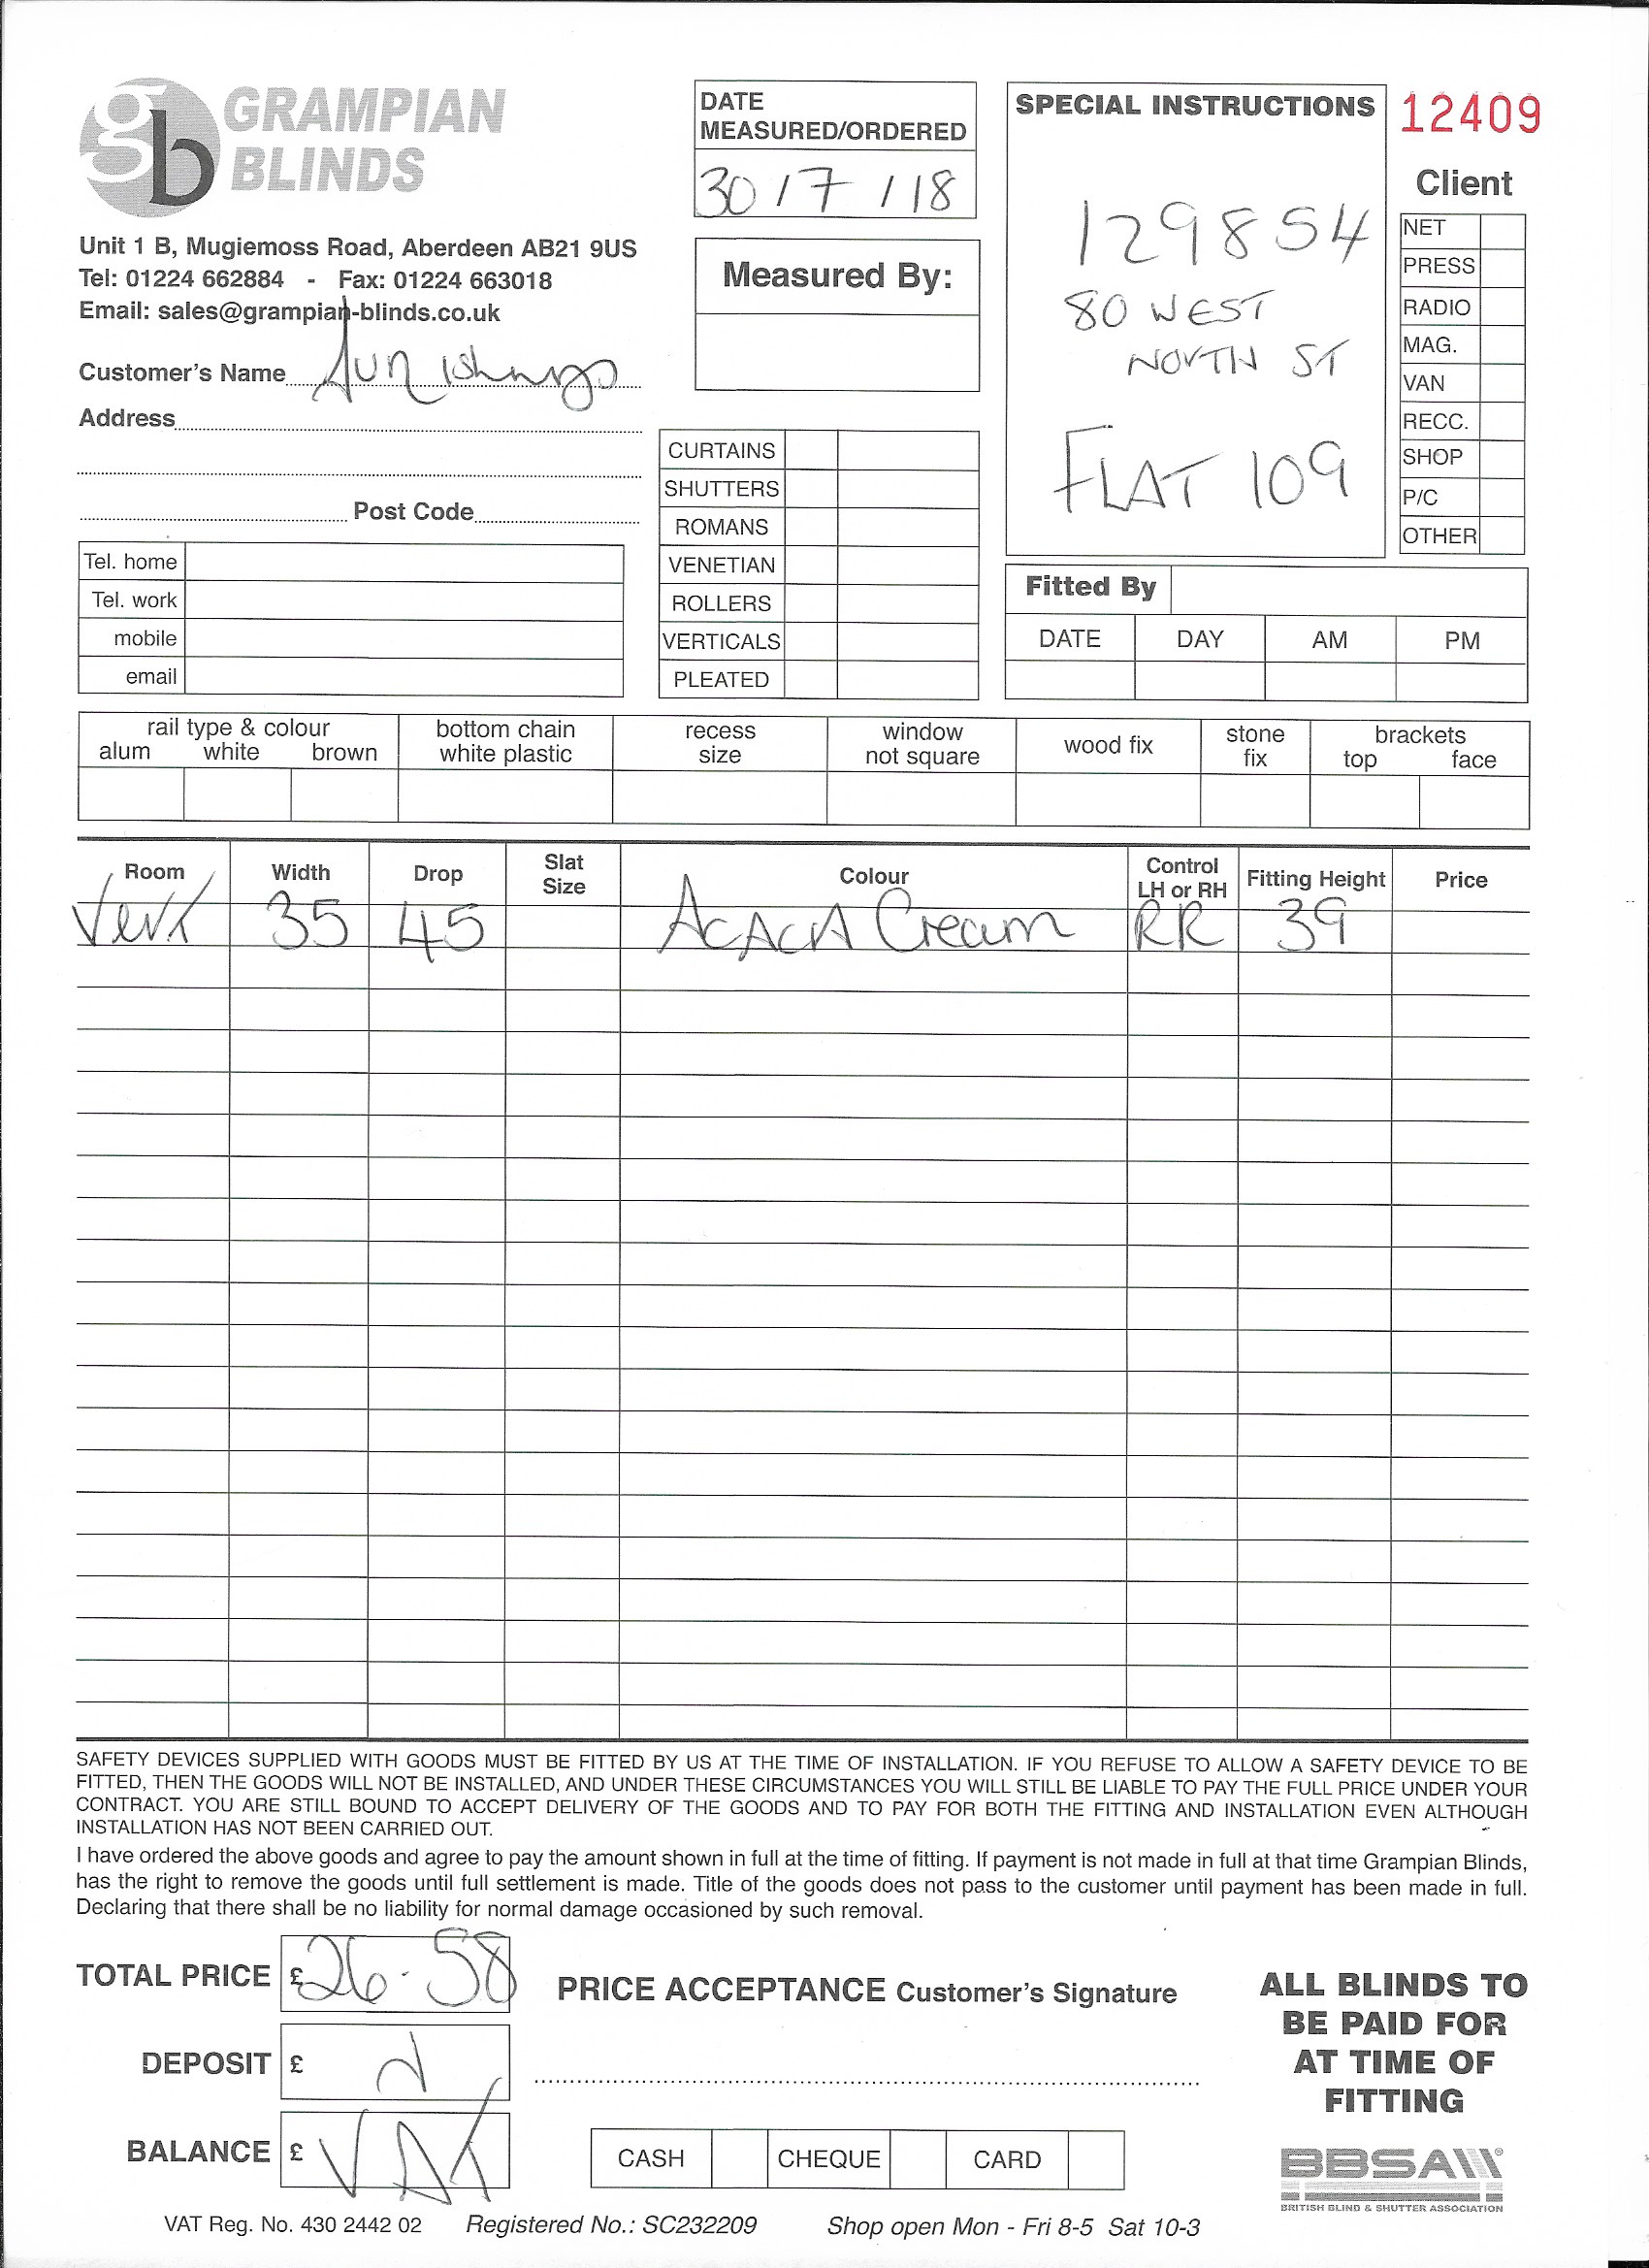 GRAMPIAN
BLINDS
gb
Unit 1 B, Mugiemoss Road, Aberdeen AB21 9US
Tel: 01224 662884 - Fax: 01224 663018
Email: sales@grampian-blinds.co.uk
Customer's Name
Address
Post Code
Tel. home
Tel. work
mobile
email
DATE
MEASURED/ORDERED
30/7/18
Measured By:
CURTAINS
SHUTTERS
ROMANS
VENETIAN
ROLLERS
VERTICALS
PLEATED
SPECIAL INSTRUCTIONS
129854
80 WEST
NORTH ST
FLAT 109
12409
Client
NET
PRESS
RADIO
MAG.
VAN
RECC.
SHOP
P/C
OTHER
Fitted By
DATE DAY AM PM
rail type & colour
alum white brown
bottom chain
white plastic
recess
size
window
not square
wood fix
stone
fix
brackets
top face
Room Width Drop Slat Size Colour Control LH or RH Fitting Height Price
Vert 35 45 ACACIA Cream RR 39
SAFETY DEVICES SUPPLIED WITH GOODS MUST BE FITTED BY US AT THE TIME OF INSTALLATION. IF YOU REFUSE TO ALLOW A SAFETY DEVICE TO BE
FITTED, THEN THE GOODS WILL NOT BE INSTALLED, AND UNDER THESE CIRCUMSTANCES YOU WILL STILL BE LIABLE TO PAY THE FULL PRICE UNDER YOUR
CONTRACT. YOU ARE STILL BOUND TO ACCEPT DELIVERY OF THE GOODS AND TO PAY FOR BOTH THE FITTING AND INSTALLATION EVEN ALTHOUGH
INSTALLATION HAS NOT BEEN CARRIED OUT.
I have ordered the above goods and agree to pay the amount shown in full at the time of fitting. If payment is not made in full at that time Grampian Blinds,
has the right to remove the goods until full settlement is made. Title of the goods does not pass to the customer until payment has been made in full.
Declaring that there shall be no liability for normal damage occasioned by such removal.
TOTAL PRICE £ 26.58
DEPOSIT £
BALANCE £ VAT
PRICE ACCEPTANCE Customer's Signature
CASH CHEQUE CARD
ALL BLINDS TO
BE PAID FOR
AT TIME OF
FITTING
BBSA
BRITISH BLIND & SHUTTER ASSOCIATION
VAT Reg. No. 430 2442 02 Registered No.: SC232209 Shop open Mon - Fri 8-5 Sat 10-3